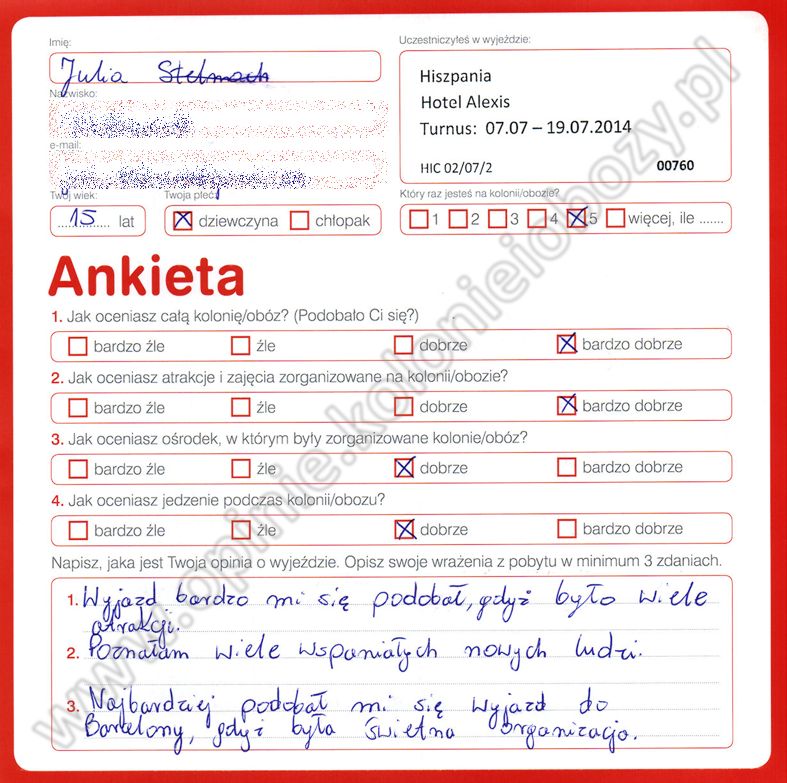 Imię:
Uczestniczyłeś w wyjeździe:
Julia Stelmach
Hiszpania
Hotel Alexis
Turnus: 07.07 – 19.07.2014
HIC 02/07/2 00760
Nazwisko:
e-mail:
Twój wiek: Twoja płeć: Który raz jesteś na kolonii/obozie?
15 lat dziewczyna chłopak 1 2 3 4 5 więcej, ile .......
Ankieta
1. Jak oceniasz całą kolonię/obóz? (Podobało Ci się?)
bardzo źle źle dobrze bardzo dobrze
2. Jak oceniasz atrakcje i zajęcia zorganizowane na kolonii/obozie?
bardzo źle źle dobrze bardzo dobrze
3. Jak oceniasz ośrodek, w którym były zorganizowane kolonie/obóz?
bardzo źle źle dobrze bardzo dobrze
4. Jak oceniasz jedzenie podczas kolonii/obozu?
bardzo źle źle dobrze bardzo dobrze
Napisz, jaka jest Twoja opinia o wyjeździe. Opisz swoje wrażenia z pobytu w minimum 3 zdaniach.
1. Wyjazd bardzo mi się podobał, gdyż było wiele
atrakcji.
2. Poznałam wiele wspaniałych nowych ludzi.
3. Najbardziej podobał mi się wyjazd do
Barcelony, gdyż była świetna organizacja.
www.opinie.kolonieiobozy.pl